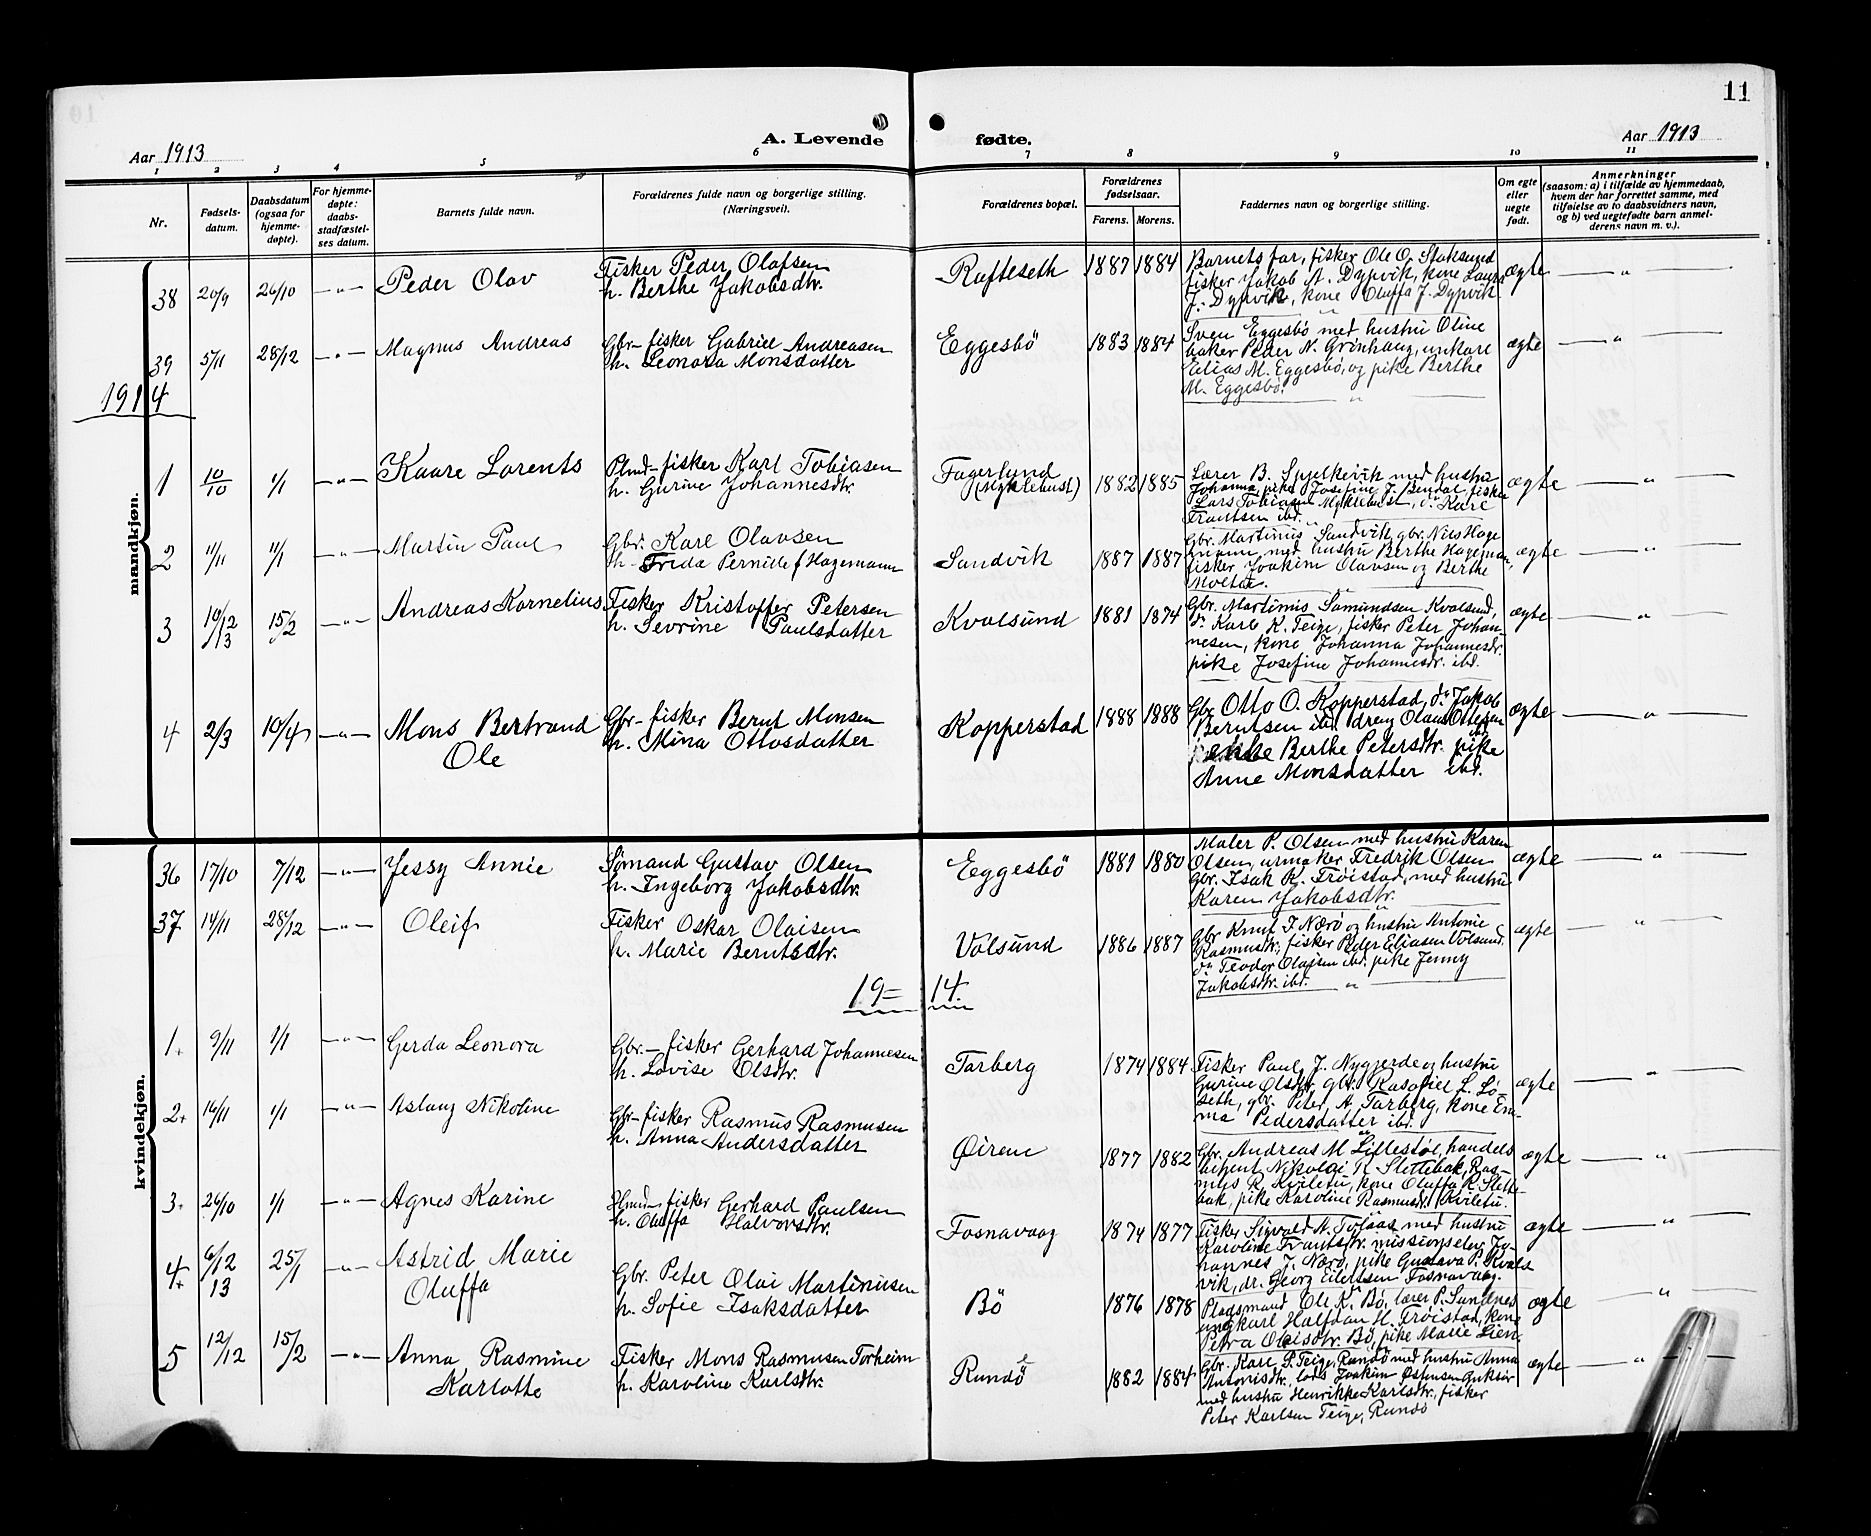 11
A. Levende fødte.
Aar 1913
Aar 1913
1 2 3 4 5 6 7 8 9 10 11
Nr.
Fødsels-
datum.
Daabsdatum
(ogsaa for
hjemme-
døpte).
For hjemme-
døpte:
daabs-
stadfæstel-
ses datum.
Barnets fulde navn.
Forældrenes fulde navn og borgerlige stilling.
(Næringsvei).
Forældrenes bopæl.
Forældrenes
fødselsaar.
Farens. Morens.
Faddernes navn og borgerlige stilling.
Om egte
eller
uegte
født.
Anmerkninger
(saasom: a) i tilfælde av hjemmedaab,
hvem der har forrettet samme, med
tilføielse av to daabsvidners navn,
og b) ved uegtefødte barn anmel-
derens navn m. v.).
mandkjøn.
38 20/9 26/10 —"— Peder Olav
Fisker Peder Olafsen
h. Berthe Jakobsdtr.
Rafteseth 1887 1884
Barnets far, fisker Ole O. Staksund
fisker Jakob A. Dypvik, kone Laura
J. Dypvik, kone Oluffa J. Dypvik
ægte —"—
39 5/11 28/12 —"— Magnus Andreas
Gbr-fisker Gabriel Andreasen
h. Leonora Monsdatter
Eggesbö 1883 1884
Sven Eggesbø med hustru Oline
baker Peder N. Grönhaug, unkarl
Elias M. Eggesbø, og pike Berthe
M. Eggesbø.
ægte —"—
1914
1 10/10 1/1 —"— Kaare Lorents
-fisker Karl Tobiasen
h. Gurine Johannesdtr.
Fagerlund
(Myklebust) 1882 1885
Lærer B. Spjelkevik med hustru
Johanna, pike Josefine J. fisker
Lars Tobiasen Myklebust, Kare
Frantsen ibd.
ægte —"—
2 11/11 11/1 —"— Martin Paul
Gbr. Karl Olavsen
h. Frida Pernille f Hagemann
Sandvik 1887 1887
Gbr. Martinus Sandvik, gbr. Nils Hage
mann med hustru Berthe Hageman,
fisker Joakim Olavsen og Berthe
Moltu.
ægte —"—
3 10/12 13 15/2 —"— Andreas Kornelius
Fisker Kristoffer Petersen
h. Sevrine Paulsdatter
Kvalsund 1881 1874
Gbr. Martinus Samundsen Kvalsund,
do Karl K. Teige, fisker Peter Johan-
nesen, kone Johanna Johannesdr.
pike Josefine Johannesdr. ibd.
ægte —"—
4 2/3 10/4 —"— Mons Bertrand
Ole
Gbr-fisker Bernt Monsen
h. Mina Ottosdatter
Kopperstad 1888 1888
Gbr Otto O. Kopperstad, do Jakob
Berntsen ibd dreng Olaus Ottesen
enke Berthe Petersdtr. pike
Anne Monsdatter ibd.
ægte —"—
kvindekjøn.
36 17/10 7/12 —"— Jessy Annie
Sømand Gustav Olsen
h. Ingeborg Jakobsdtr.
Eggesbö 1881 1880
Maler P. Olsen med hustru Karen
Olsen, urmaker Fredrik Olsen
Gbr. Isak K. Frøistad, med hustru
Karen Jakobsdtr.
ægte —"—
37 14/11 28/12 —"— Oleif
Fisker Oskar Olaisen
h. Marie Berntsdtr.
Volsund 1886 1887
Gbr Knut J Nærø og hustru Antonie
Rasmusdtr, fisker Peder Eliasen Volsund
do Teodor Olaisen ibd. pike Jenny
Jakobsdtr. ibd. —"—
ægte —"—
19=14.
1+ 9/11 1/1 —"— Gerda Leonora
Gbr.-fisker Gerhard Johannesen
h. Lovise Olsdtr.
Tarberg 1874 1884
Fisker Paul J. Nygjerde og hustru
Gurine Olsdtr, gbr. Rasmus L. Lø-
seth, gbr. Peter A. Tarberg, kone Em-
ma Pedersdatter ibd.
ægte —"—
2+ 16/11 1/1 —"— Aslaug Nikoline
Gbr-fisker Rasmus Rasmusen
h. Anna Andersdatter
Øirene 1877 1882
Gbr. Andreas M. Lillestøl, handels
betjent Nikolai R. Slettebak, Ras-
mus R. Kviletu, kone Oluffa R. Slette-
bak, pike Karoline Rasmusdt. Kviletu.
ægte —"—
3+ 26/10 1/1 —"— Agnes Karine
-fisker Gerhard Paulsen
h. Oluffa Halvorsdtr.
Fosnavaag 1874 1877
Fisker Sigvald A. med hustru
Karoline Frantsdtr. missionselev Jo-
hannes J. Nærø, pike Gustava P. Kvals
vik, dr. Georg Eilertsen Fosnavaag.
ægte —"—
4+ 6/12 13 25/1 —"— Astrid Marie
Oluffa
Gbr. Peter Olai Martinusen
h. Sofie Isaksdatter
Bö 1876 1878
Pladsmand Ole K. Bø, lærer P. Sundnes
ungkarl Halfdan H. Frøistad, kone
Petra Olaisdtr. Bø, pike Marie Lien.
ægte —"—
5 12/12 15/2 —"— Anna Rasmine
Karlotte
Fisker Mons Rasmusen Torheim
h. Karoline Karlsdtr.
Rundö 1882 1884
Gbr. Karl P. Teige, Rundø med hustru Anna
Antonisdtr, lods Joakim Østensen
med hustru Henrikke Karlsdtr, fisker
Peter Karlsen Teige, Rundø
ægte —"—